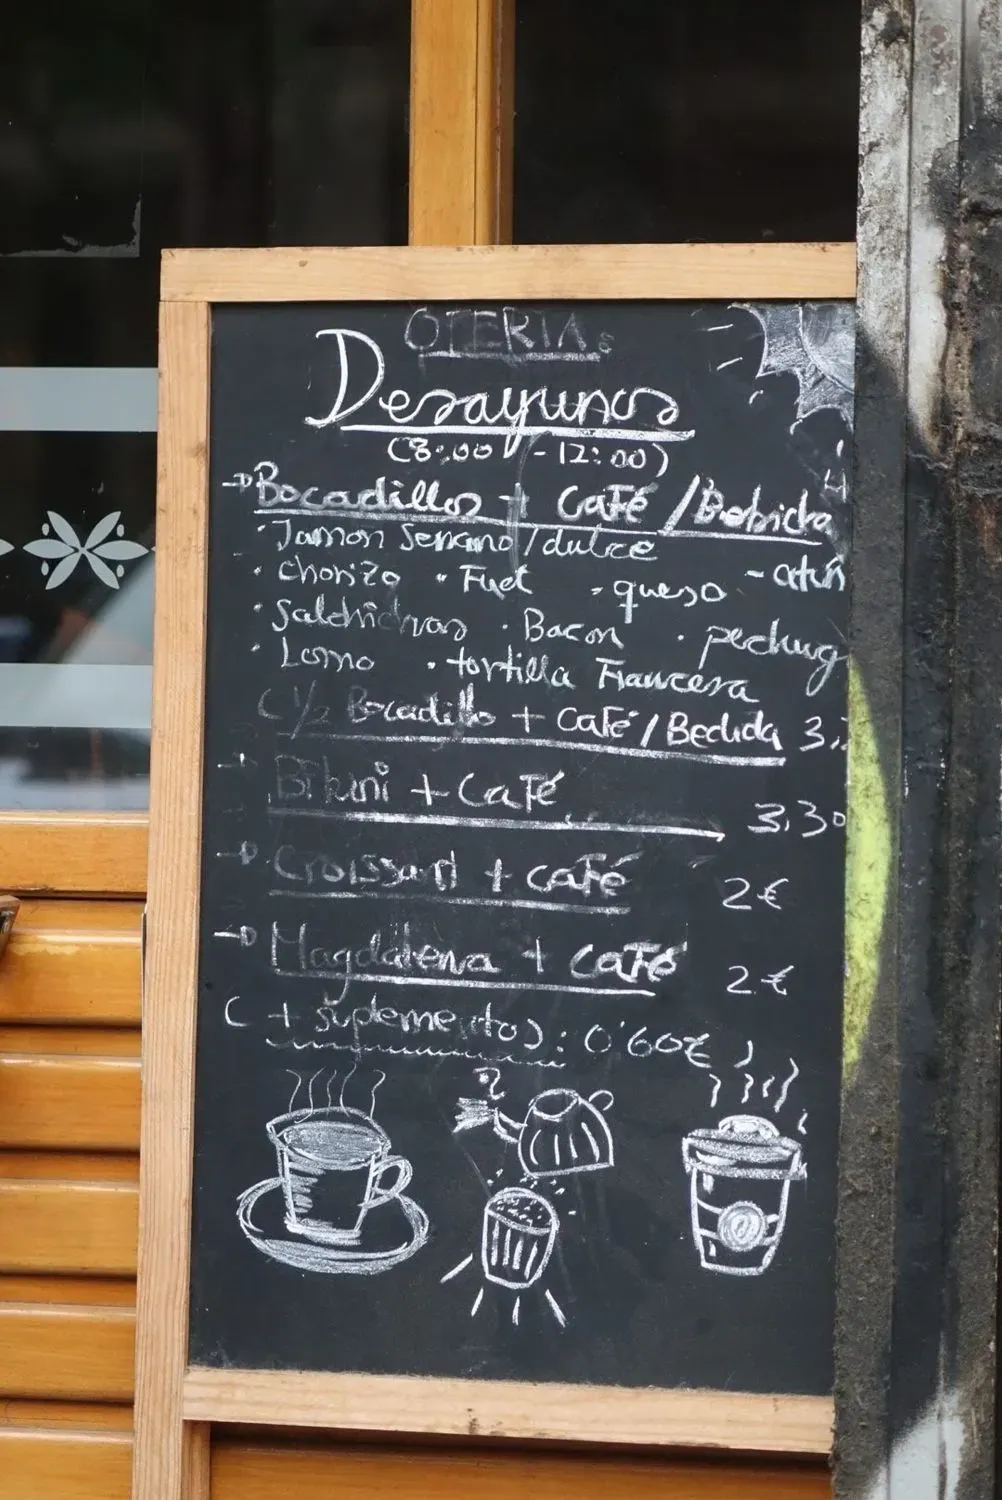 OFERTAs
Desayunos
(8:00 - 12:00)
Bocadillos + Café / Bebida 4
· Jamon serrano / dulce
· chorizo · Fuet · queso - atún
· salchichas · Bacon · pechug
· Lomo · tortilla Francesa
(1/2 Bocadillo + Café / Bedida 3,
Bikini + Café 3,30
Croissant + café 2€
Magdalena + café 2€
(+ suplemento): 0'60€